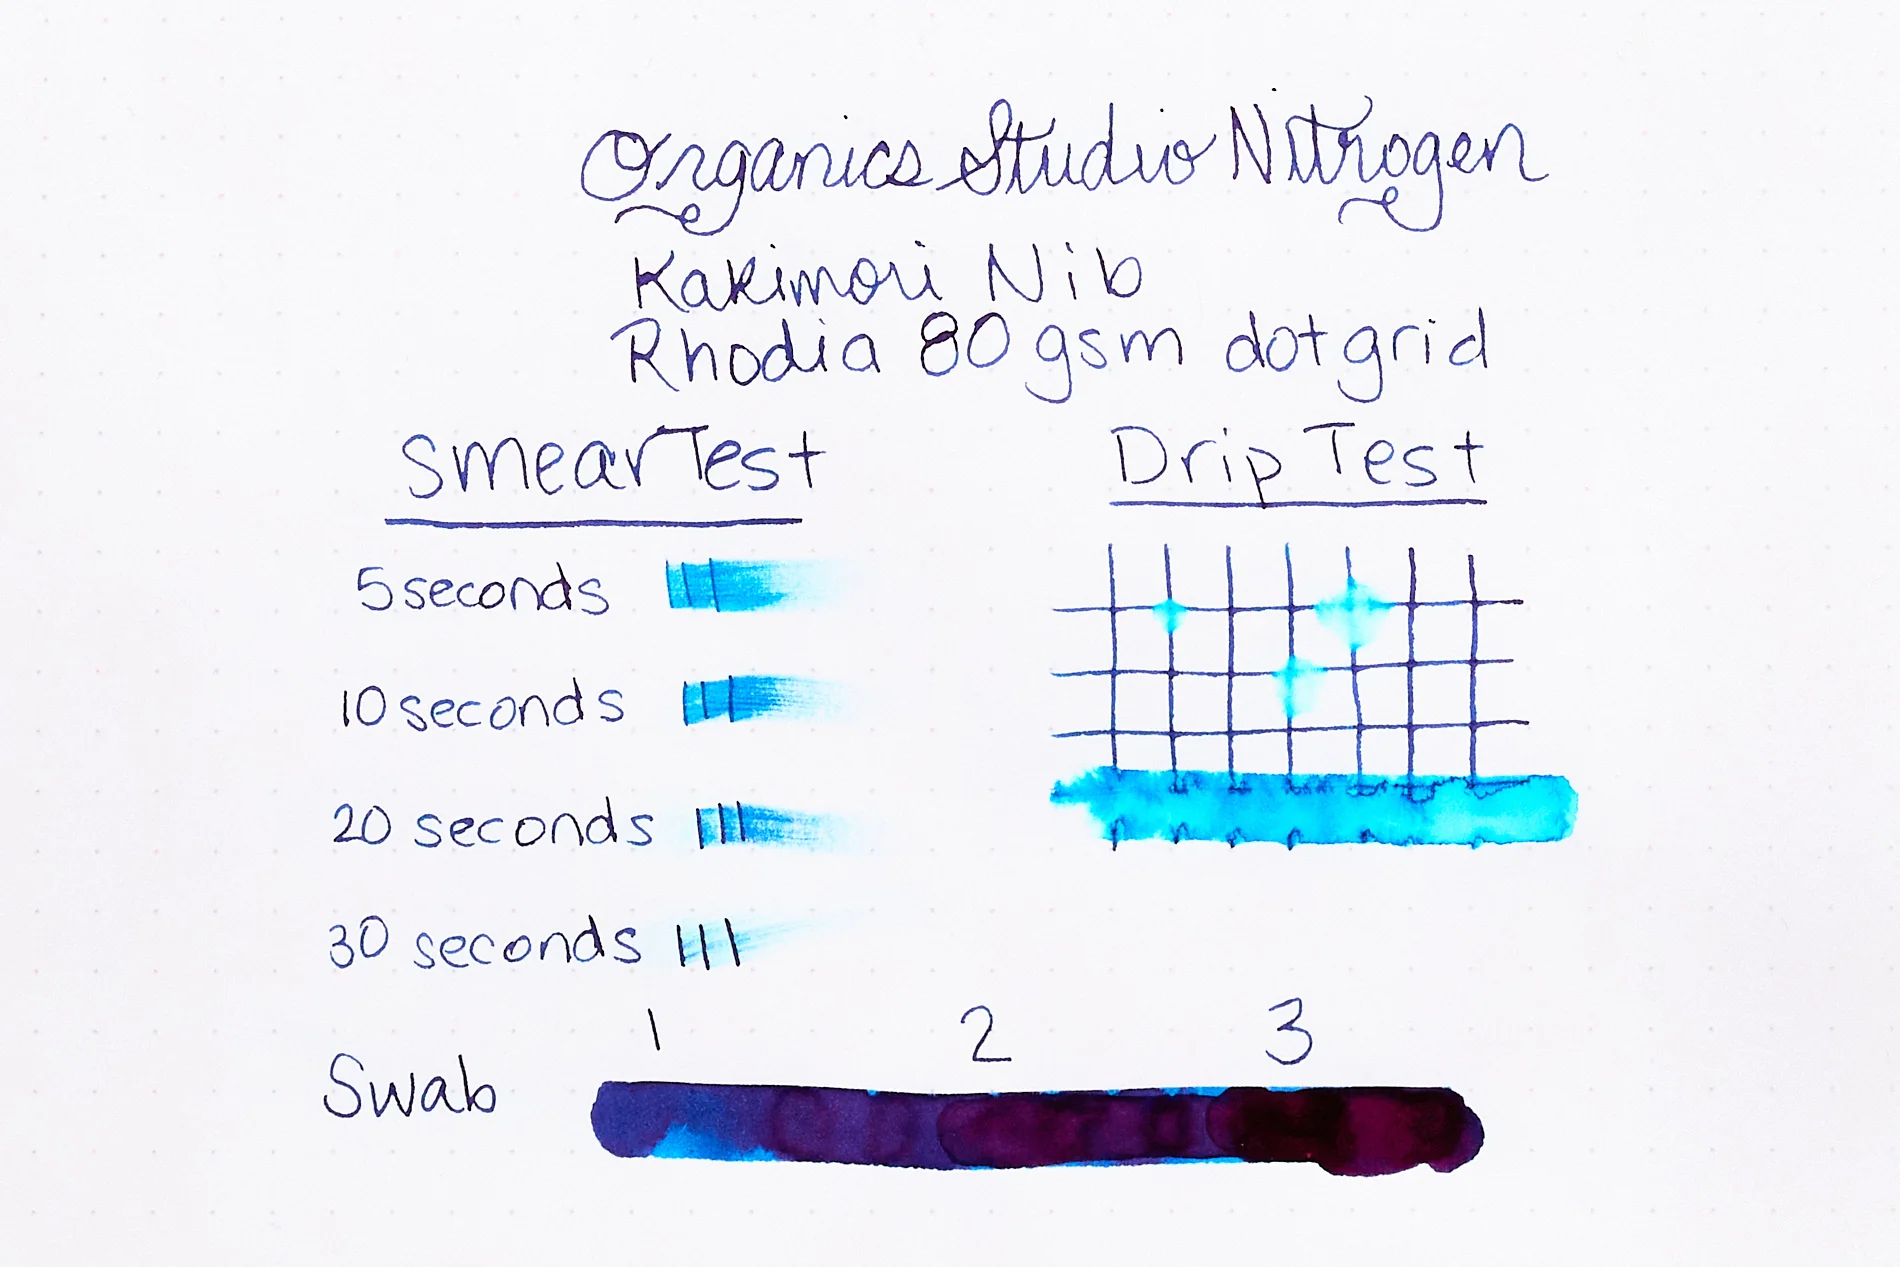 Organics Studio Nitrogen
Kakimori Nib
Rhodia 80 gsm dot grid
Smear Test
Drip Test
5 seconds
10 seconds
20 seconds
30 seconds
1 2 3
Swab